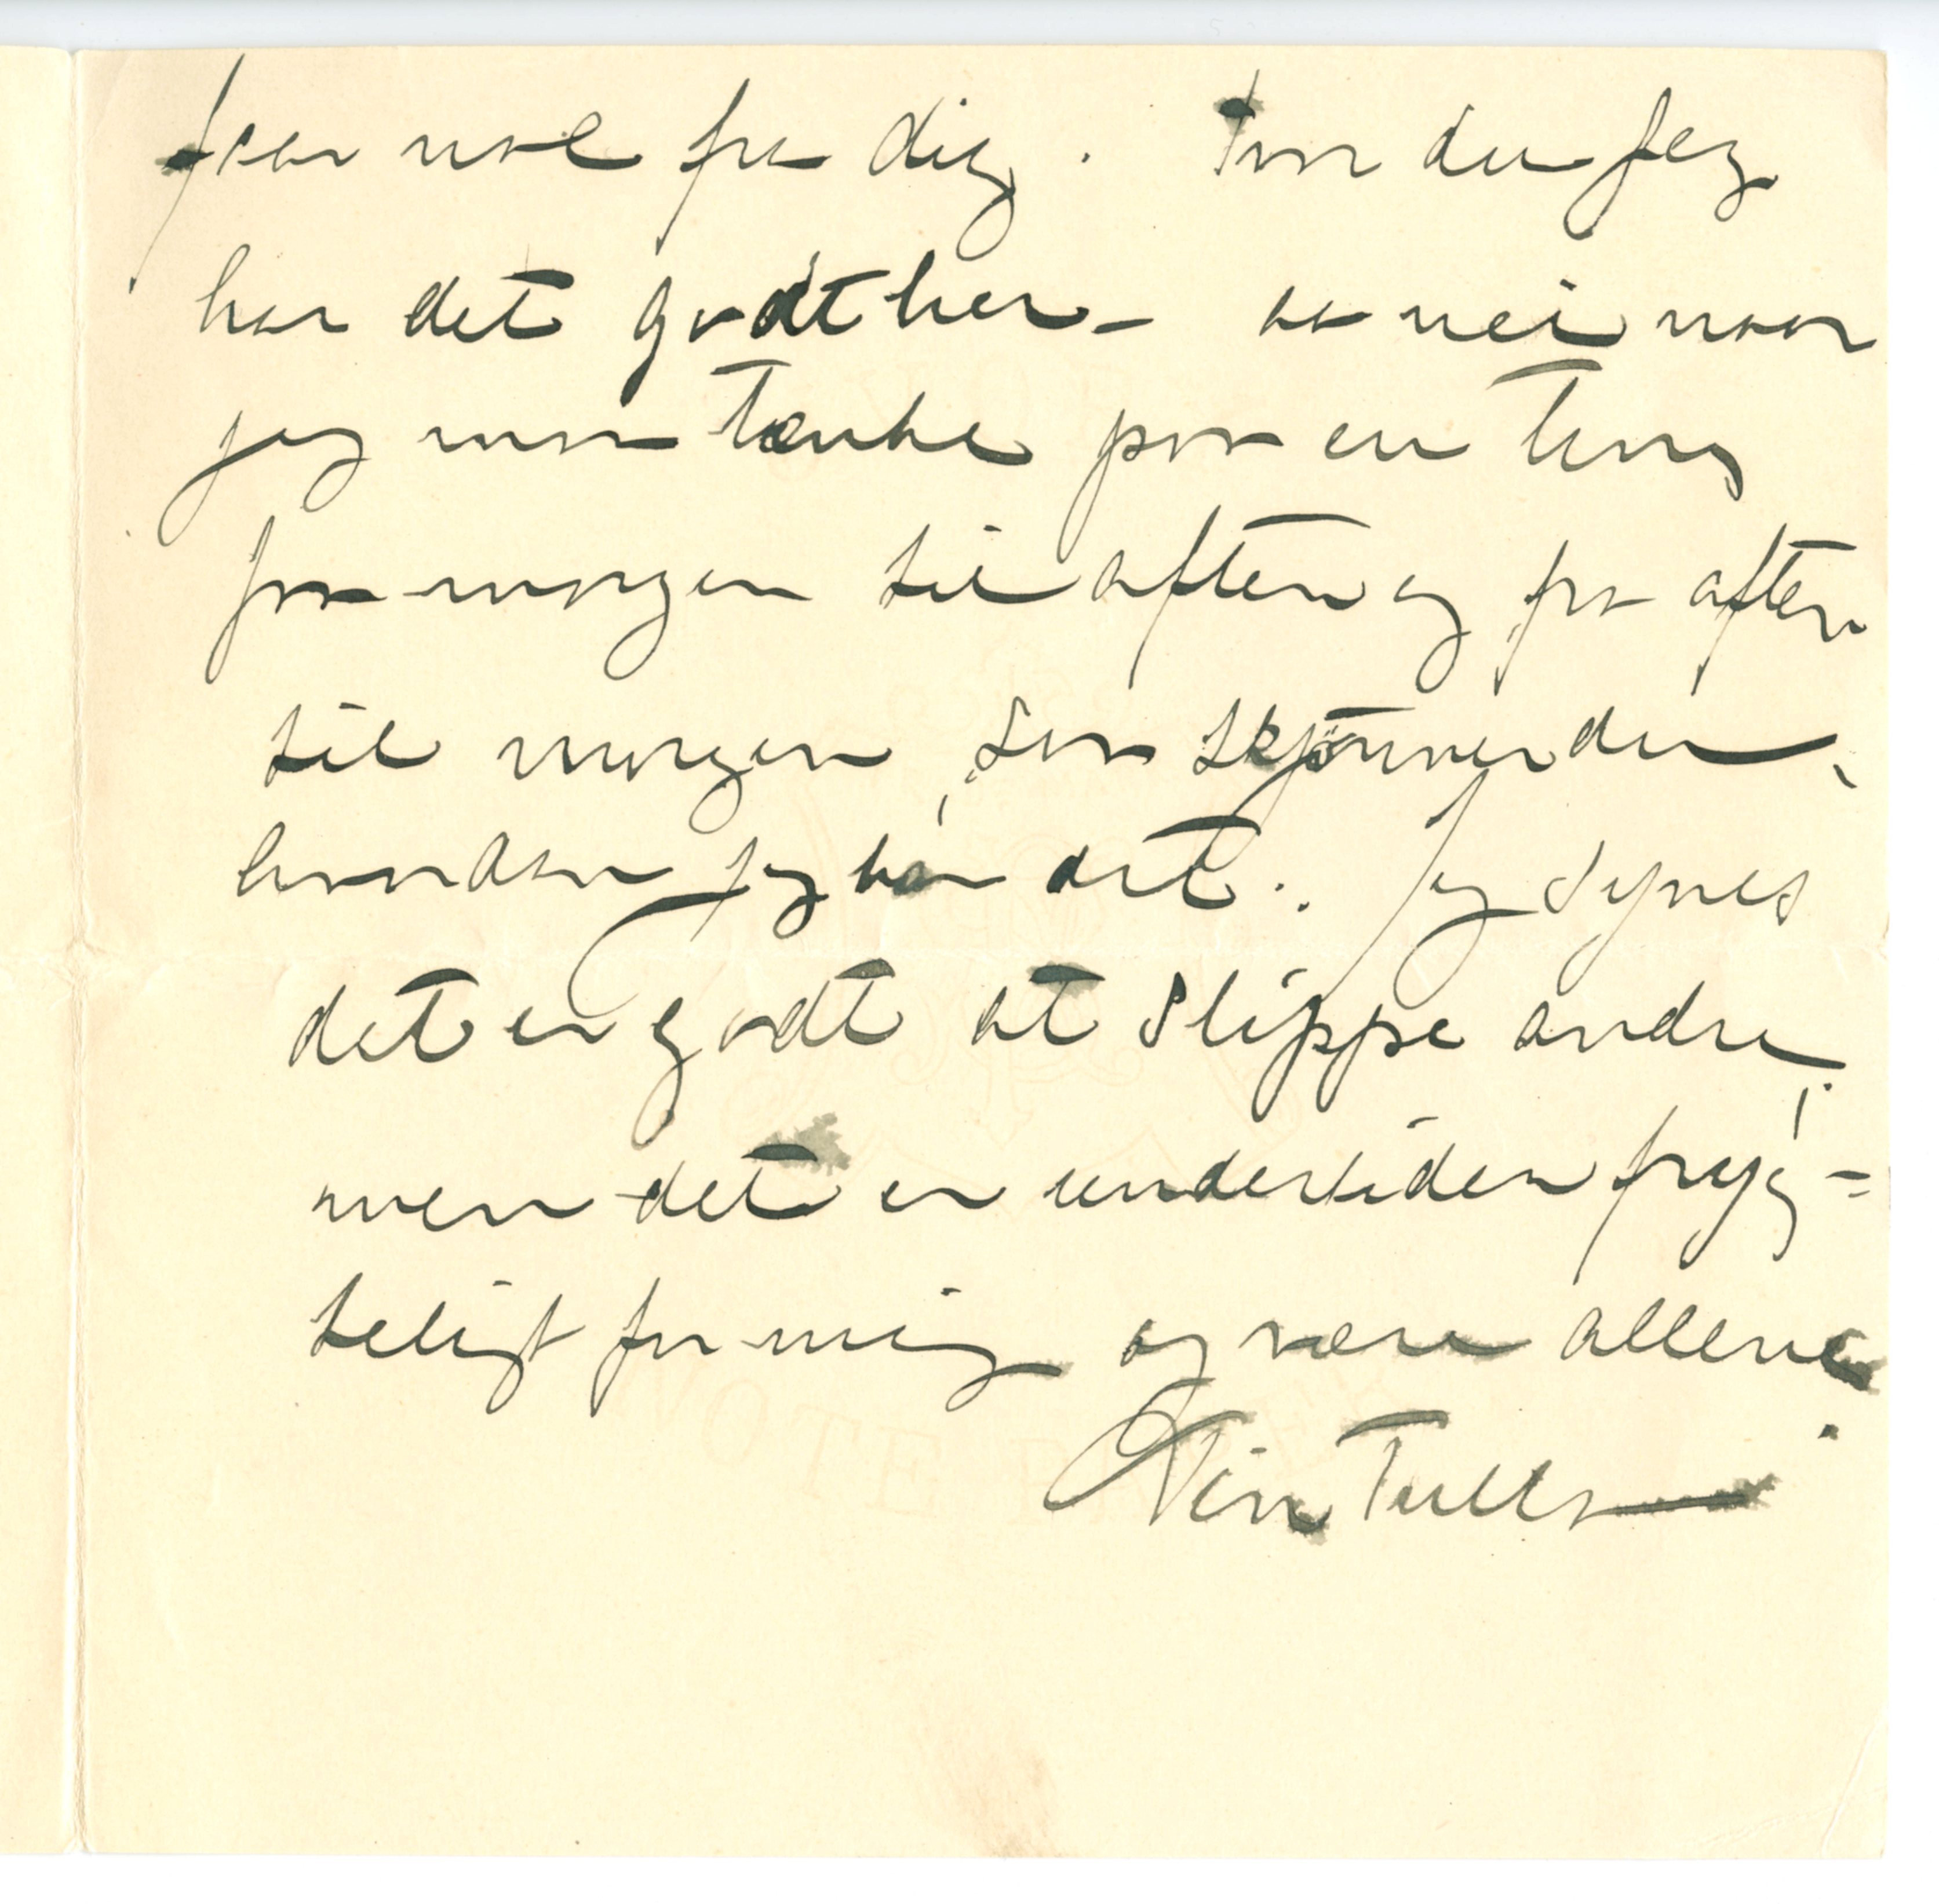 faar noe fra dig. Tror du jeg
har det godt her – aa nei naar
jeg maa tænke paa en ting
fra morgen til aften og fra aften
til morgen, saa skjønner du,
hvordan jeg har det. Jeg synes
det er godt at slippe andre,
men det er undertiden fryg=
teligt for mig og være allene.
Din Tulla